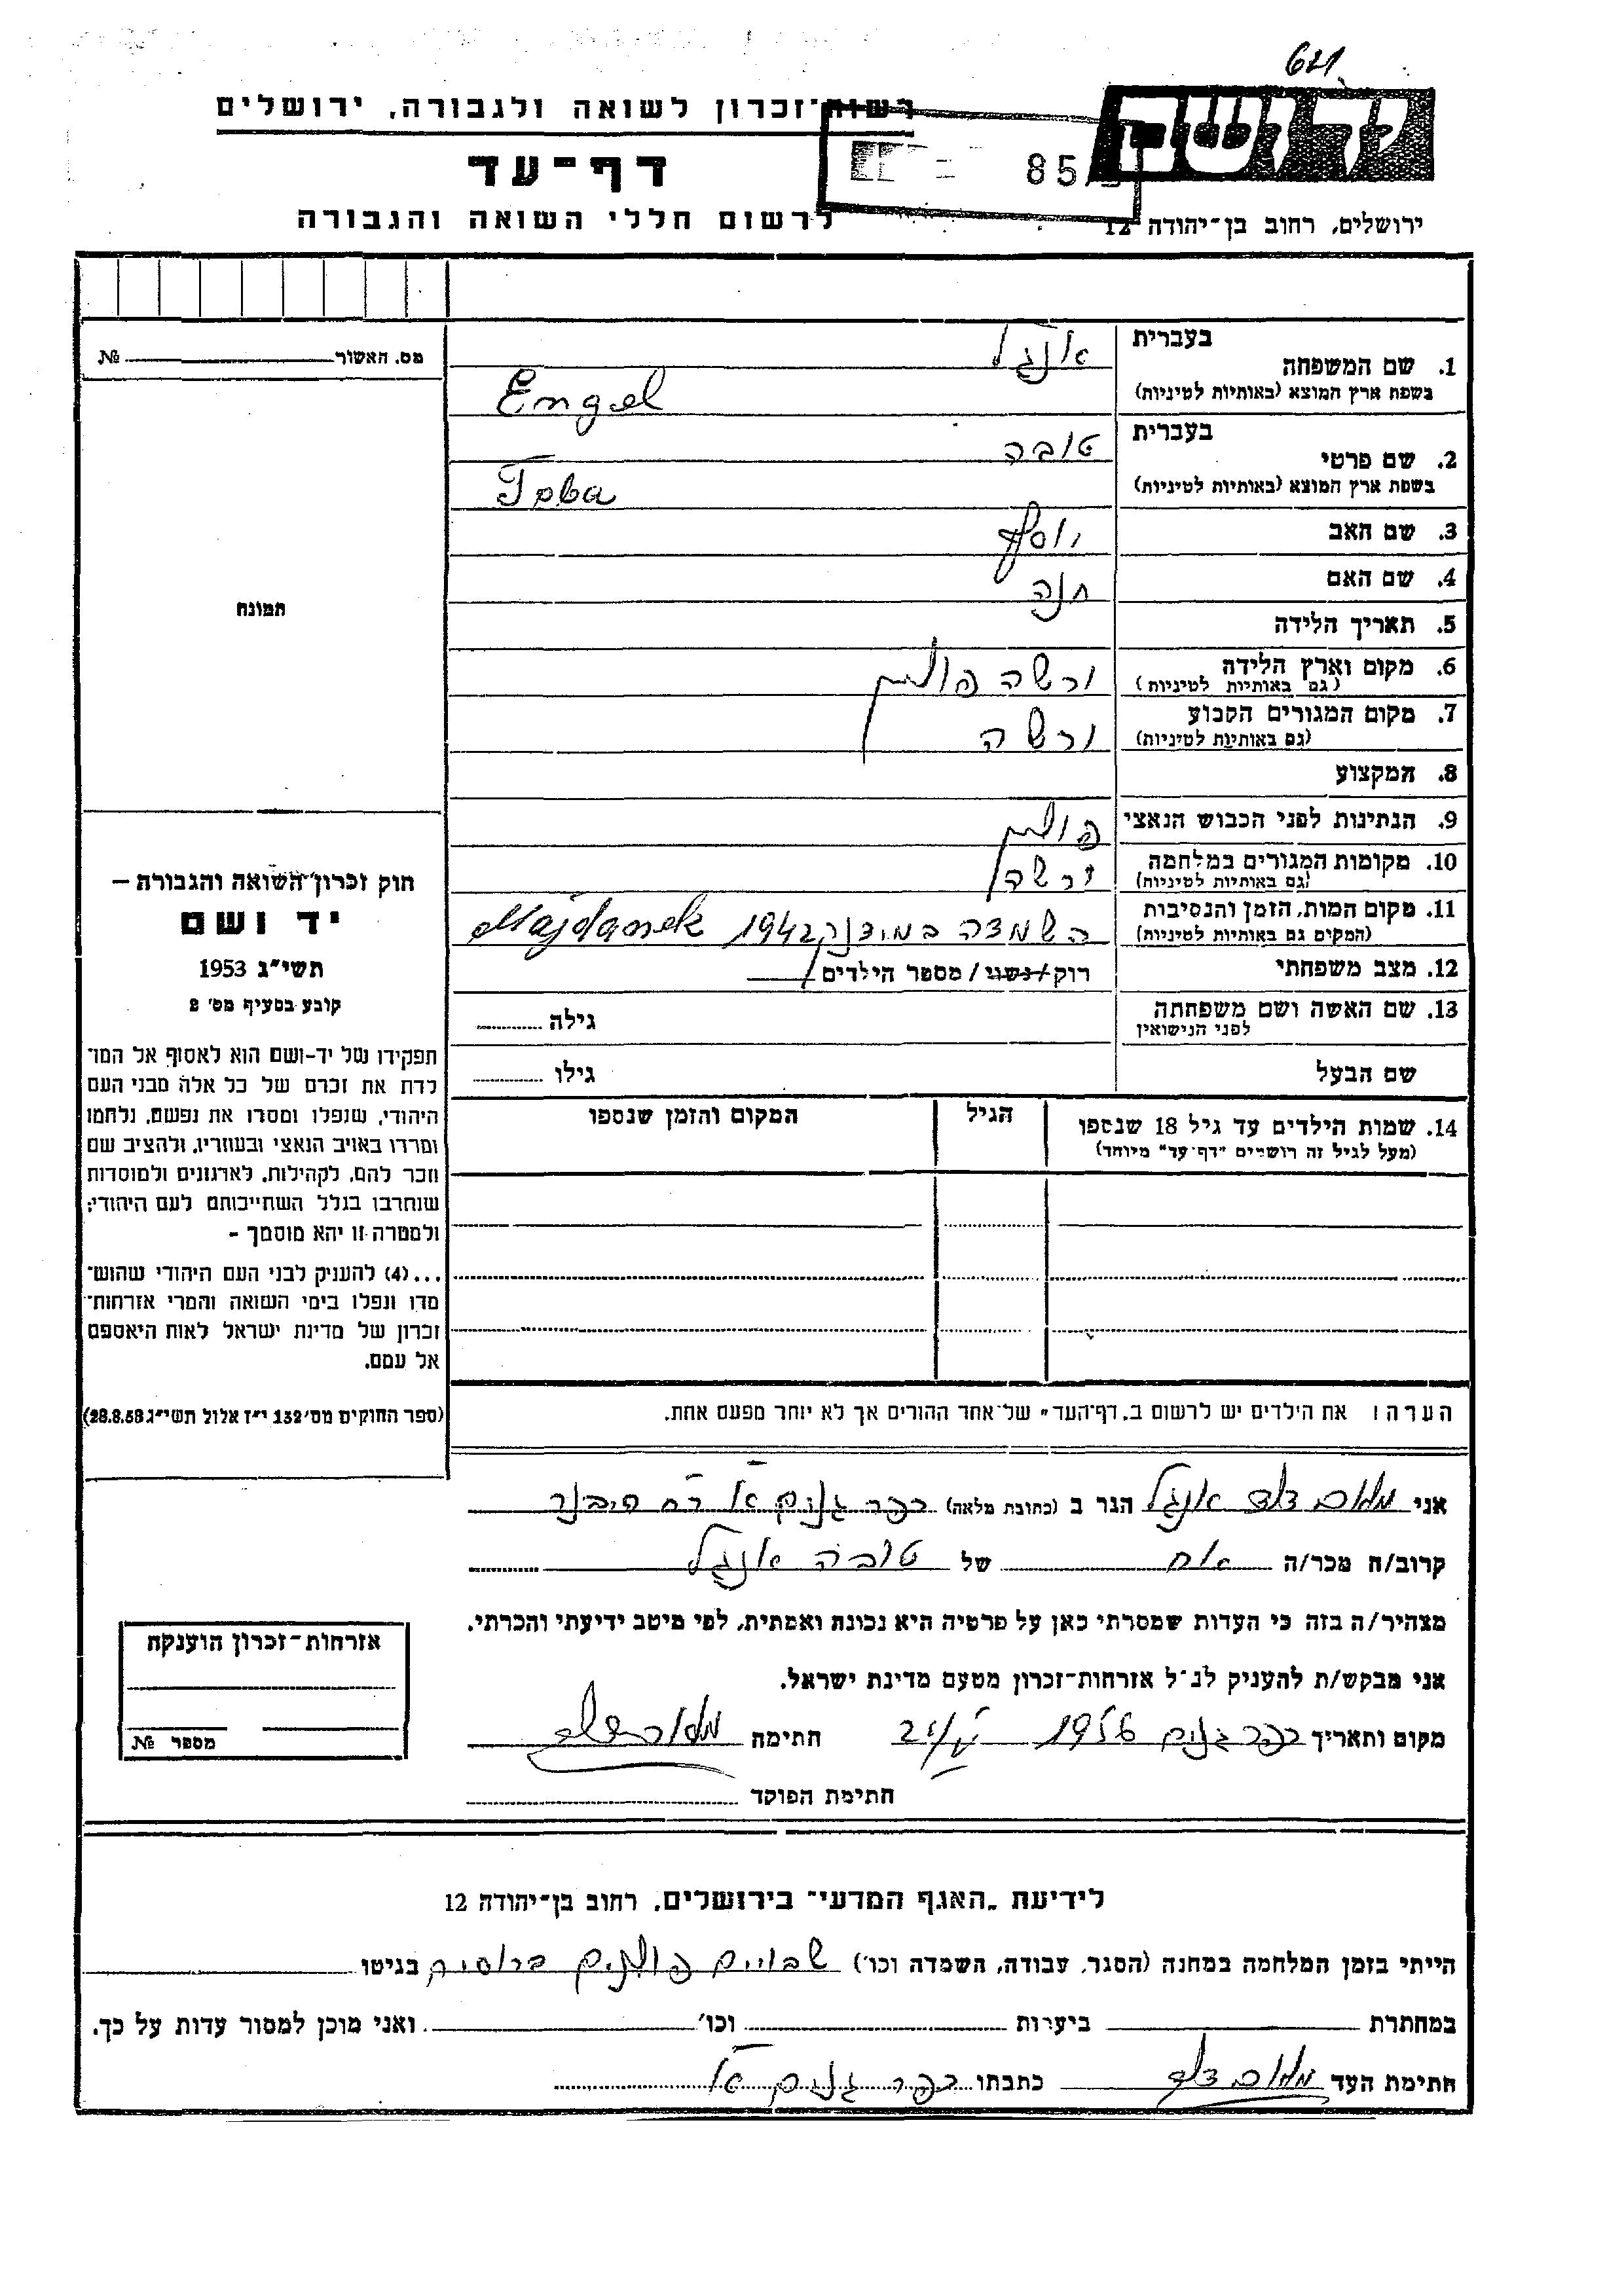 621
רשות־זכרון לשואה ולגבורה, ירושלים
דף־עד
85
לרשום חללי השואה והגבורה
ירושלים, רחוב בן־יהודה 12
מס. האשור № 
בעברית אנגל
1. שם המשפחה
בשפת ארץ המוצא (באותיות לטיניות) Engel
בעברית
2. שם פרטי טובה
בשפת ארץ המוצא (באותיות לטיניות) Toba
3. שם האב יוסף
4. שם האם חנה
5. תאריך הלידה
6. מקום וארץ הלידה ורשה פולין
(גם באותיות לטיניות)
7. מקום המגורים הקבוע ורשה
(גם באותיות לטיניות)
8. המקצוע
9. הנתינות לפני הכבוש הנאצי פולין
10. מקומות המגורים במלחמה ורשה
(גם באותיות לטיניות)
11. מקום המות, הזמן והנסיבות השמדה במידנק 1942 Majdanek
(המקום גם באותיות לטיניות)
12. מצב משפחתי רוק/נשוי/מספר הילדים
13. שם האשה ושם משפחתה גילה
לפני הנישואין
שם הבעל גילו
14. שמות הילדים עד גיל 18 שנספו הגיל המקום והזמן שנספו
(מעל לגיל זה רושמים "דף־עד" מיוחד)
הערה: את הילדים יש לרשום ב„דף־העד" של אחד ההורים אך לא יותר מפעם אחת.
תמונה
חוק זכרון השואה והגבורה –
יד ושם
תשי״ג 1953
קובע בסעיף מס׳ 2
תפקידו של יד-ושם הוא לאסוף אל המו־
לדת את זכרם של כל אלה מבני העם
היהודי, שנפלו ומסרו את נפשם, נלחמו
ומרדו באויב הנאצי ובעוזריו, ולהציב שם
וזכר להם, לקהילות, לארגונים ולמוסדות
שנחרבו בגלל השתייכותם לעם היהודי;
ולמטרה זו יהא מוסמך -
...(4) להעניק לבני העם היהודי שהוש־
מדו ונפלו בימי השואה והמרי אזרחות־
זכרון של מדינת ישראל לאות היאספם
אל עמם.
(ספר החוקים מס׳ 132 י״ז אלול תשי״ג 28.8.53)
אני דוד אנגל הגר ב (כתובת מלאה) כפר גנים א׳ רח
קרוב/ה מכר/ה אח של טובה אנגל
מצהיר/ה בזה כי העדות שמסרתי כאן על פרטיה היא נכונה ואמתית, לפי מיטב ידיעתי והכרתי.
אני מבקש/ת להעניק לנ״ל אזרחות-זכרון מטעם מדינת ישראל.
מקום ותאריך כפר גנים 1956 חתימה
חתימת הפוקד
אזרחות-זכרון הוענקה
מספר №
לידיעת „האגף המדעי" בירושלים, רחוב בן־יהודה 12
הייתי בזמן המלחמה במחנה (הסגר, עבודה, השמדה וכו׳) שבויים פולנים ברוסיה בגיטו
במחתרת ביערות וכו׳ ואני מוכן למסור עדות על כך.
חתימת העד דוד כתבתו כפר גנים א׳